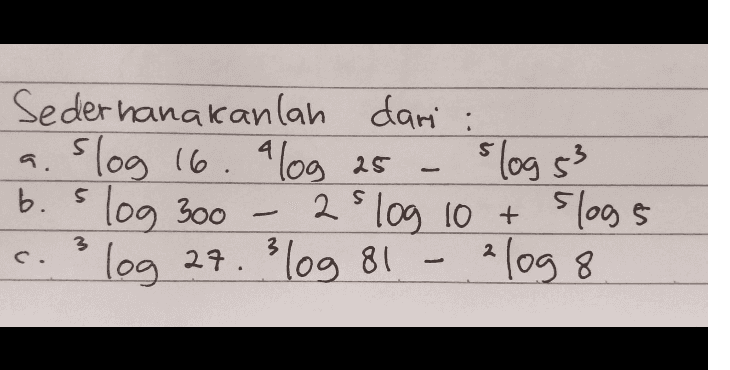 Sederhanakanlah dari :
a. ⁵log 16 . ⁴log 25 - ⁵log 5³
b. ⁵log 300 - 2 ⁵log 10 + ⁵log 5
c. ³log 27 . ³log 81 - ²log 8